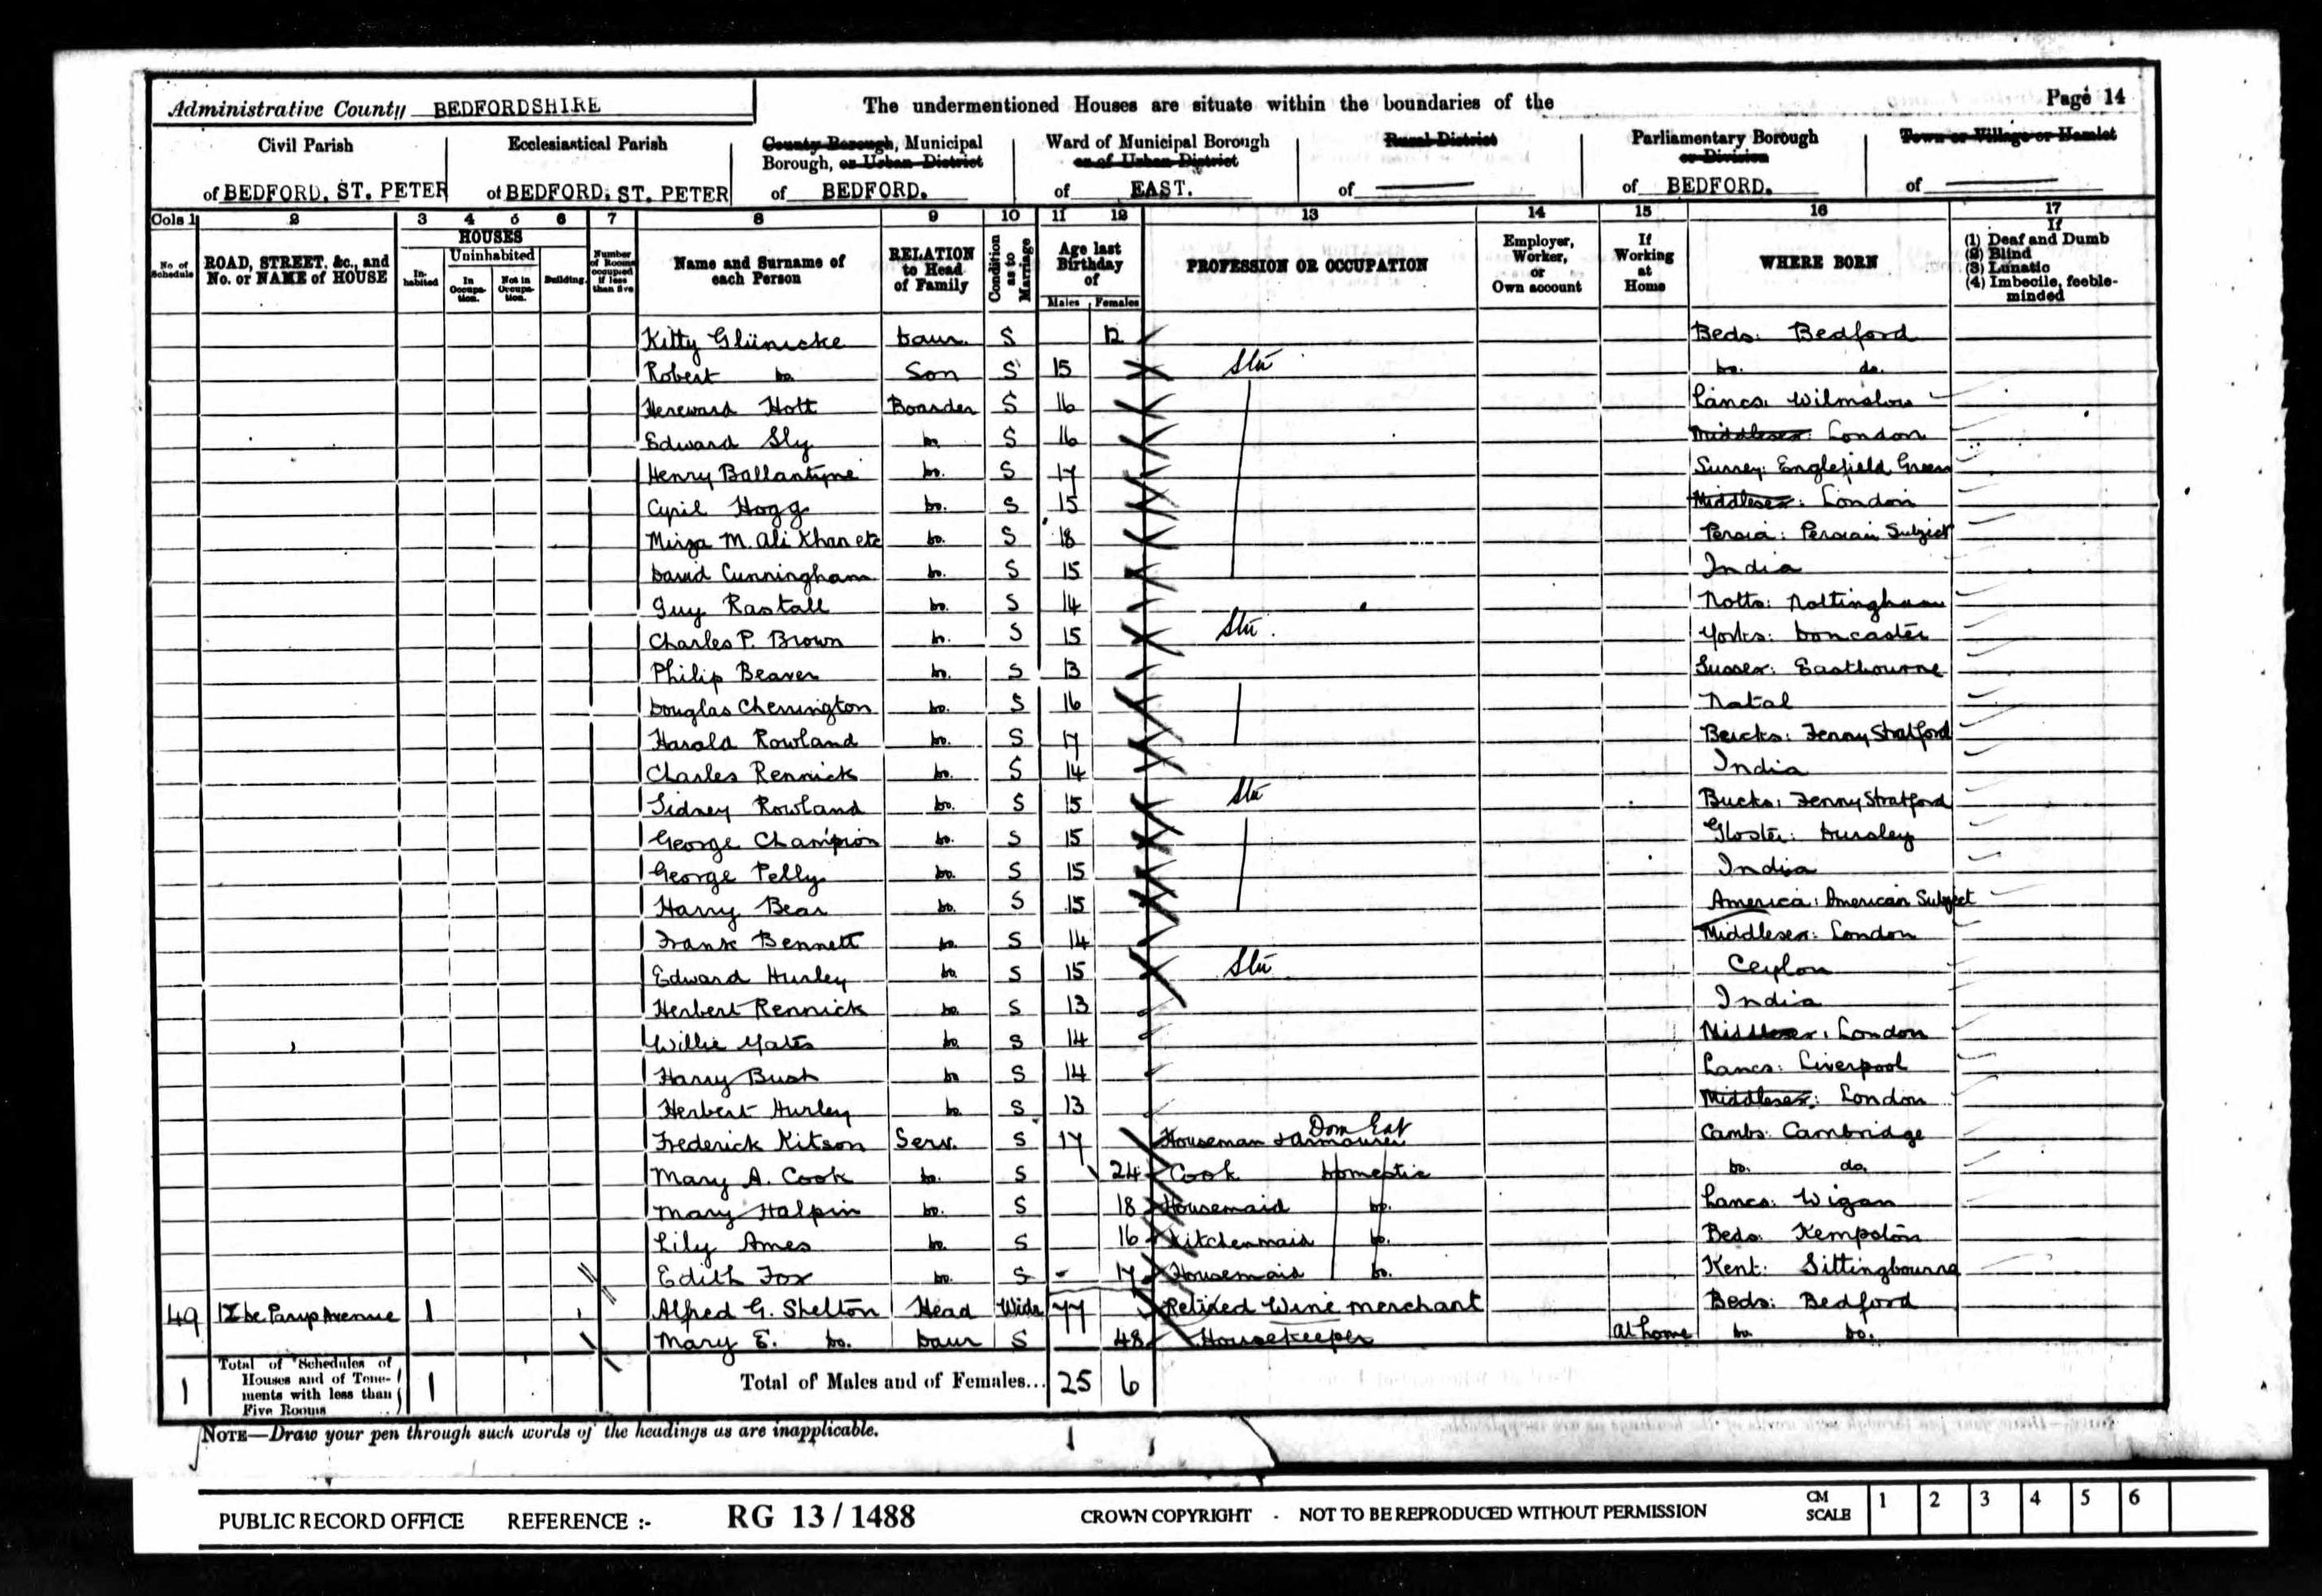 Administrative County BEDFORDSHIRE The undermentioned Houses are situate within the boundaries of the Page 14
Civil Parish of BEDFORD, ST. PETER
Ecclesiastical Parish of BEDFORD, ST. PETER
County Borough, Municipal Borough, or Urban District of BEDFORD.
Ward of Municipal Borough or of Urban District of EAST.
Rural District of
Parliamentary Borough or Division of BEDFORD.
Town or Village or Hamlet of
Cols 1 2 3 4 5 6 7 8 9 10 11 12 13 14 15 16 17
No. of Schedule
ROAD, STREET, &c., and No. or NAME of HOUSE
HOUSES
Inhabited
Uninhabited
In Occupation.
Not in Occupation.
Building.
Number of Rooms occupied if less than five
Name and Surname of each Person
RELATION to Head of Family
Condition as to Marriage
Age last Birthday of
Males Females
PROFESSION OR OCCUPATION
Employer, Worker, or Own account
If Working at Home
WHERE BORN
If
(1) Deaf and Dumb
(2) Blind
(3) Lunatic
(4) Imbecile, feeble-minded
Kitty Glünicke Daur. S 12 Beds: Bedford
Robert Do Son S 15 Stu Do. do.
Hereward Holt Boarder S 16 Lancs: Wilmslow
Edward Sly Do S 16 Middlesex: London
Henry Ballantyne Do. S 17 Surrey: Englefield Green
Cyril Hogg Do. S 15 Middlesex: London
Mirza M. Ali Khan etc Do. S 18 Persia: Persian Subject
David Cunningham Do. S 15 India
Guy Rastall Do. S 14 Notts: Nottingham
Charles P. Brown Do. S 15 Stu. Yorks: Doncaster
Philip Beaver Do. S 13 Sussex: Eastbourne
Douglas Cherrington Do. S 16 Natal
Harald Rowland Do. S 17 Bucks: Fenny Stratford
Charles Rennick Do. S 14 India
Sidney Rowland Do. S 15 Stu Bucks: Fenny Stratford
George Champion Do. S 15 Gloster: Dursley
George Pelly Do. S 15 India
Harry Bear Do. S 15 America: American Subject
Frank Bennett Do. S 14 Middlesex: London
Edward Hurley Do S 15 Stu Ceylon
Herbert Rennick Do. S 13 India
Willie Yates Do. S 14 Middlesex: London
Harry Bush Do S 14 Lancs: Liverpool
Herbert Hurley Do. S 13 Middlesex: London
Frederick Kitson Serv. S 17 Houseman Dom Cambs: Cambridge
Mary A. Cook Do. S 24 Cook Domestic Do. do.
Mary Halpin Do. S 18 Housemaid Do. Lancs: Wigan
Lily Ames Do. S 16 Kitchenmaid Do. Beds: Kempston
Edith Fox Do. S - 17 Housemaid Do. Kent: Sittingbourne
49 De Parys Avenue 1 Alfred G. Shelton Head Widr 77 Retired Wine Merchant Beds: Bedford
Mary E. Do. Daur S 48 Housekeeper At home Do Do.
1 Total of Schedules of Houses and of Tenements with less than Five Rooms 1 Total of Males and of Females... 25 6
NOTE—Draw your pen through such words of the headings as are inapplicable.
PUBLIC RECORD OFFICE REFERENCE :- RG 13 / 1488 CROWN COPYRIGHT - NOT TO BE REPRODUCED WITHOUT PERMISSION CM SCALE 1 2 3 4 5 6